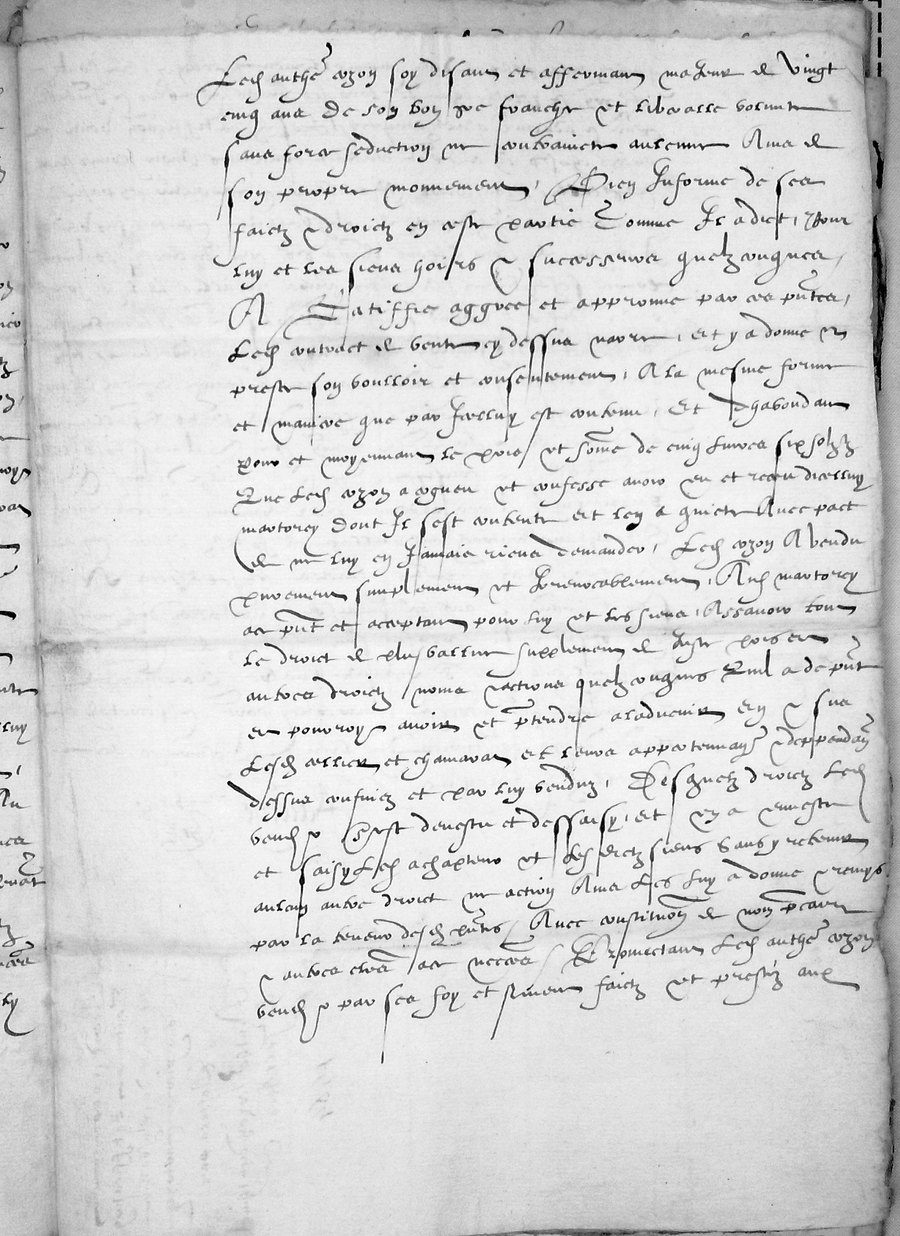 Led anthe cozon soy disant et affermant majeur de vingt
cinq ans de son bon gre franche et liberalle volunte
sans force seduction ne contraincte aulcune Ains de
son propre mouvement, Bien Informe de ses
faictz & droictz en ceste partie Comme Il a dict, Pour
luy et les siens hoirs & successeurs quelzconques,
A Ratiffie aggree et approuve par ces pntes,
Led contract de vente cy dessus narre, et y a donne &
preste son voulloir et consentement, A la mesme forme
et maniere que par Icelluy est contenu, Et dhabondant
pour et moyennant le prix et some de cinq livres six solz
Que led cozon a cogneu et confesse avoir eu et receu dicelluy
martorey dont Il sest contente et len a quicte Avec pact
de ne luy en Jamais riens demander, Led cozon A vendu
purement simplement et Irrevocablement, Aud martorey
ce pnt et acceptant pour luy et les siens, Assavoir tout
le droict de plus vallue supplement de juste prix et
autres droictz noms & actions quelzconques Quil a de pnt
et pourroyt avoir et ptendre a ladvenir en & sus
Lesd cellier et chanavar et leurs appertenances & deppendans
dessus confinez et par luy venduz, Desquelz droictz Led
vend & sest devestu et dessaisy, et en a envestu
et saisy led achapteur et les dictz siens Sans y retenir
aulcun autre droict ne action Ains les luy a donne & remys
par la teneur desd pntes, Avec constitution de nom pcaire
& autres clres ace necces, Promectant Led anthe cozon
vend & par ses foy et serment faictz et prestez aux